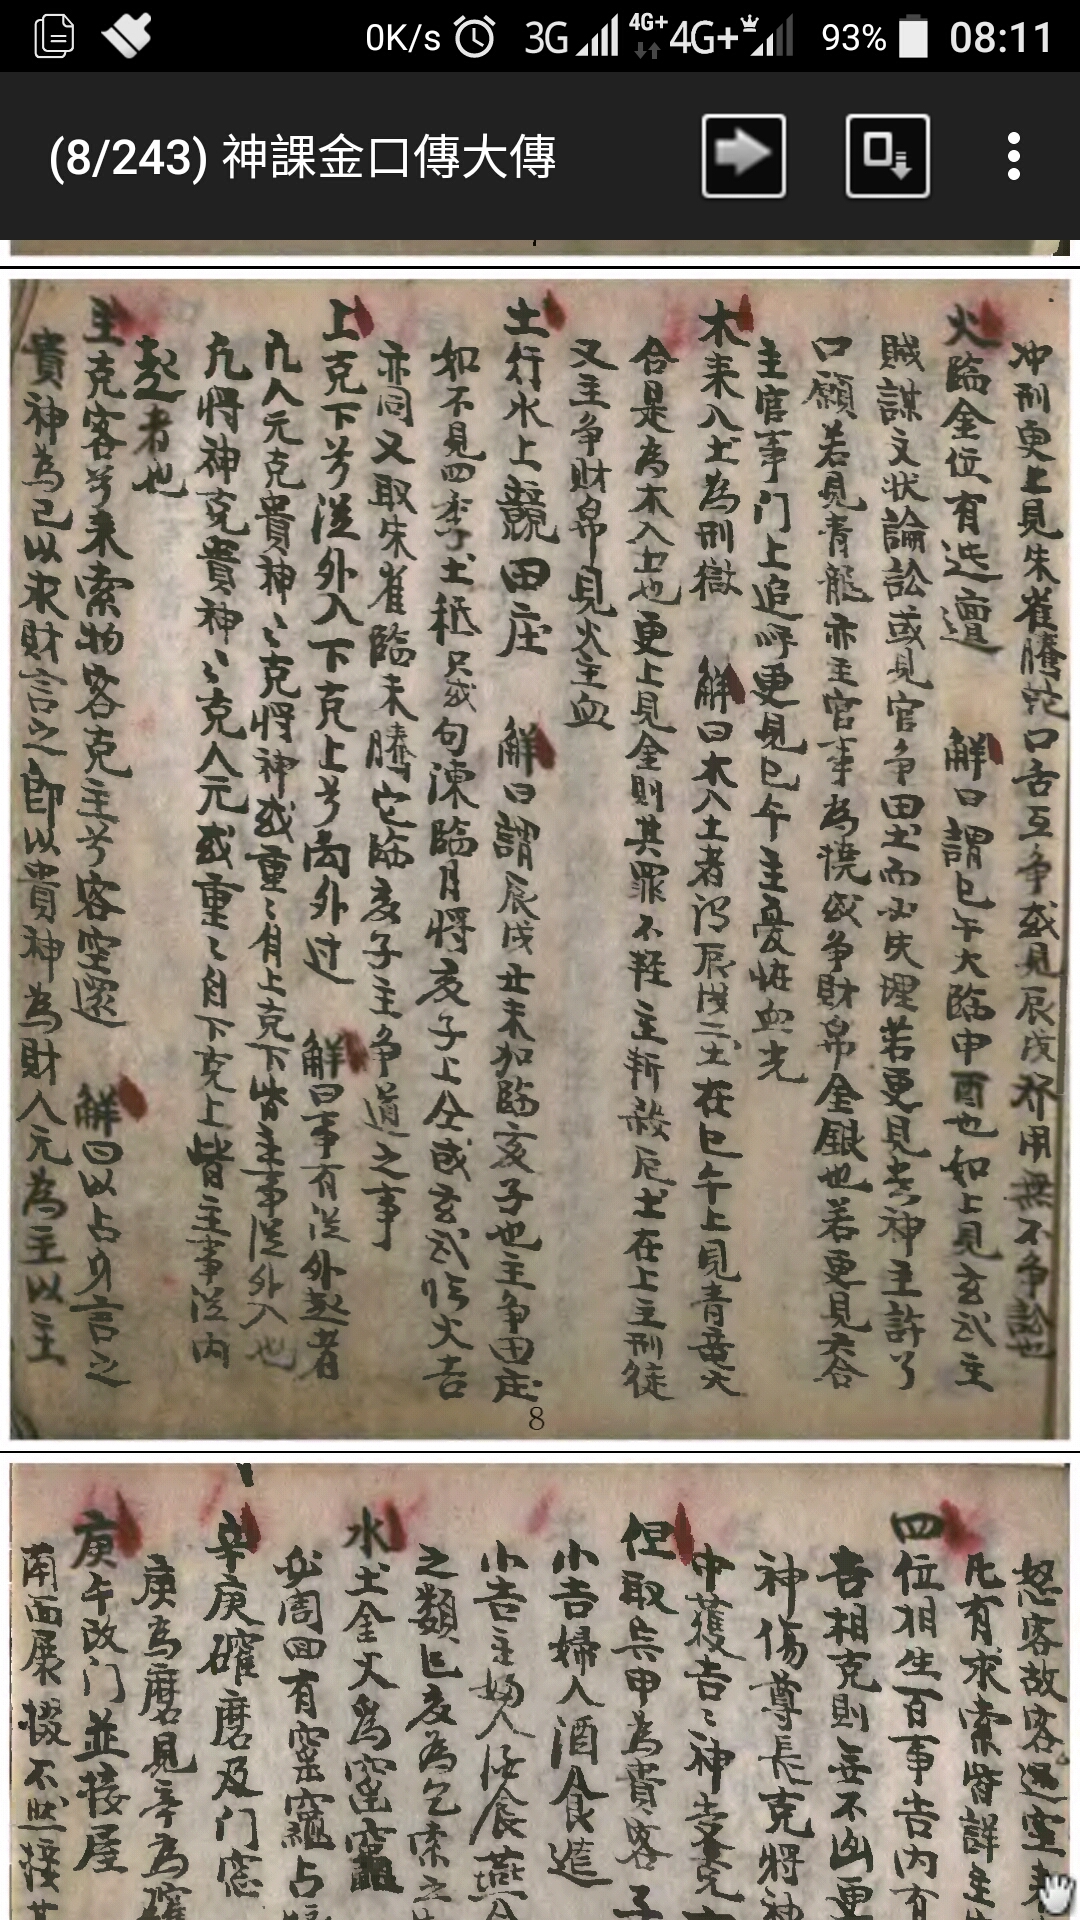 0K/s 3G 4G+ 4G+ 93% 08:11
(8/243) 神課金口傳大傳
冲刑更上見朱雀騰蛇口舌互争或見辰戌不用無不争訟也
火臨金位有迍邅 解曰謂巳午火臨申酉也如上見玄武主
賊謀文状論訟或見官争田土而必失理若更見貴神主許了
口願若見青龍亦主官事為撓或争財帛金銀也若更見六合
主官事门上追呼更見巳午主憂怪血光
木来入土為刑獄 解曰木入土者乃辰戌二土在巳午上見青竜天
合是為木入土也更上見金則其罪不軽主斬殺凡土在上主刑徒
又主争財帛見火主血
土行水上競田庄 解曰謂辰戌丑未加臨亥子也主争田庄
如不見四季土秪只或句陳臨月将亥子上公或玄武临火吉
亦同又取朱雀臨未騰它臨亥子主争道之事
上克下兮従外入下克上兮向外过 解曰事有従外起者
凡人元克貴神〻克将神或重〻自上克下皆主事従外入也
凡将神克貴神〻克人元或重〻自下克上皆主事従内
起者也
主克客兮来索物客克主兮客空還 解曰以占身言之
貴神為己以求財言之即以貴神為財人元為主以主
8
怒客故客還空来
凡有求索皆詳主
四位相生百事吉内有
吉相克則無不凶更
神傷尊長克将神
中獲吉〻神
但取 申為貴客子
小吉婦人酒食進
小吉主婦人酒食燕
之類巳亥為乞索之
水土金火為窑竈
必周回有窑竈占
辛庚確磨及门窓
庚為磨見辛為確
庚午改门並接屋
南面展掇不然接其